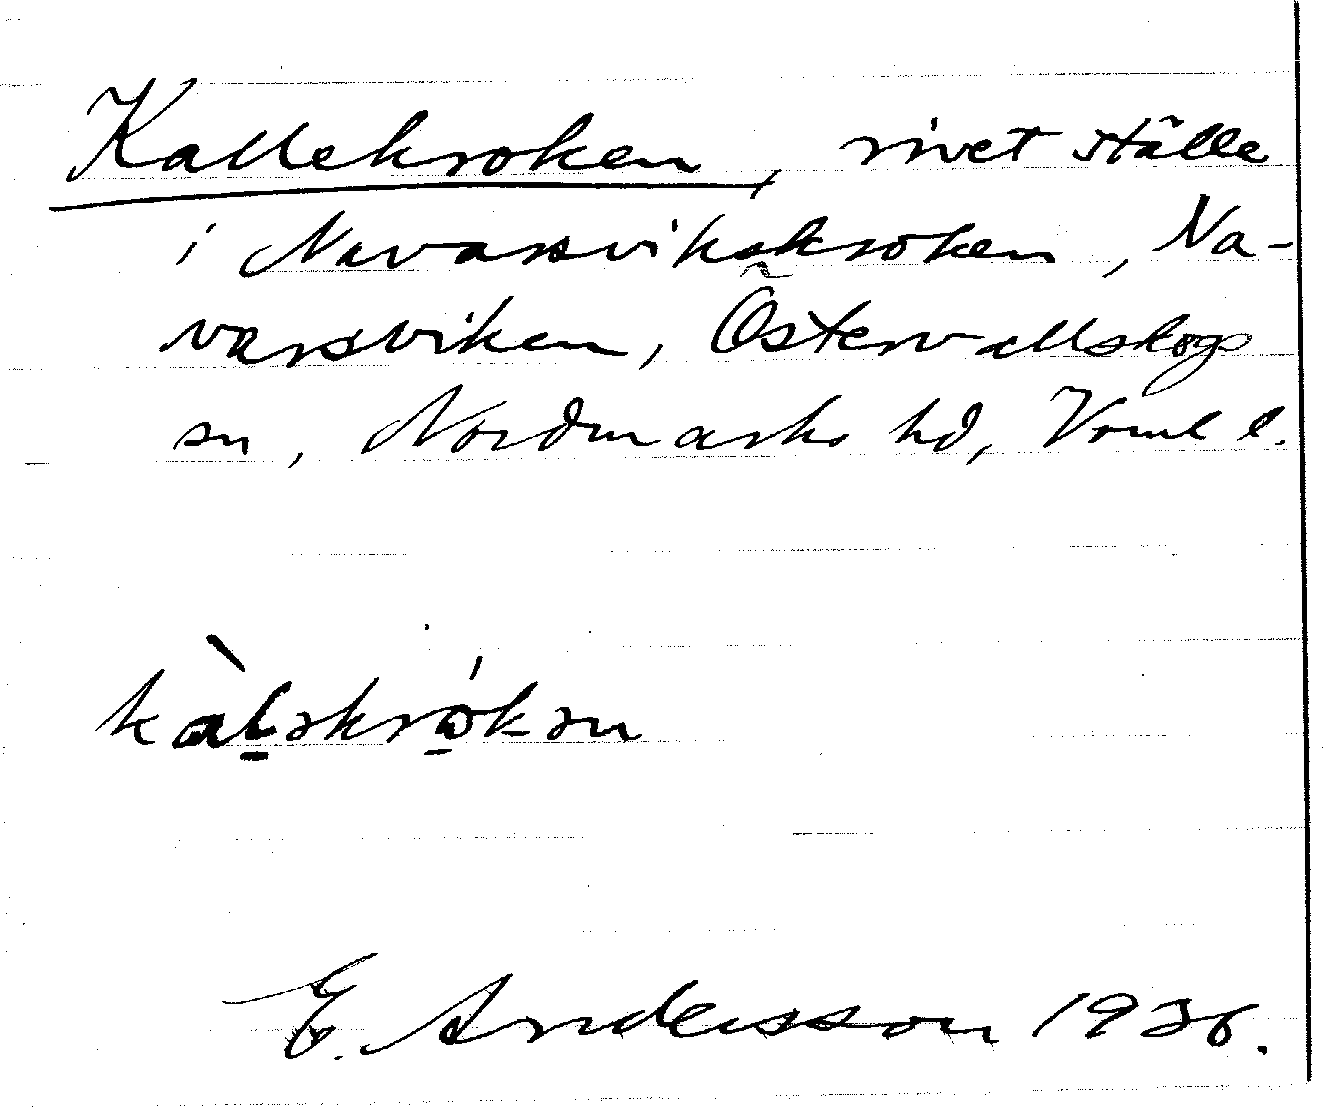 Kallekroken, rivet ställe
i Navarsvikskroken, Na-
varsviken, Östervallskogs
sn, Nordmarks hd, Vrml l.
kàl̠əkró̠kən
E. Andersson 1936.